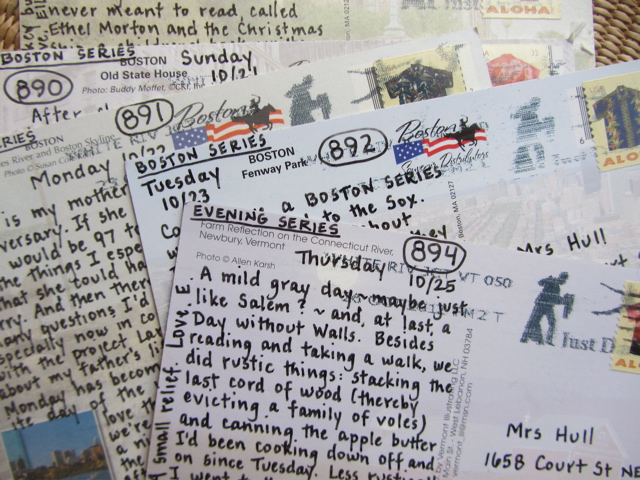 never meant to read called
Ethel Morton and the Christmas
ALOHA
BOSTON SERIES
890
BOSTON
Old State House
Photo: Buddy Moffet,
Sunday
10/21
After
891
Boston
BOSTON
River and Boston Skyline
10/22
Monday
is my mother
versary. If she
would be 97
the things I espe
that she could ha
rry. And then there
many questions I'd
specially now in co
with the project La
about my father's li
Monday has becom
BOSTON SERIES
BOSTON
Fenway Park
892
Boston
Souvenir Distributors
Tuesday
10/23
a BOSTON SERIES
to the Sox.
about
Boston, MA 02127
Mrs Hull
ALO
EVENING SERIES
Farm Reflection on the Connecticut River,
Newbury, Vermont
894
Photo © Allen Karsh
Thursday
10/25
WHITE RIV JCT VT 050
A mild gray day~maybe just
like Salem? ~ and, at last, a
Day without Walls. Besides
reading and taking a walk, we
did rustic things: stacking the
last cord of wood (thereby
evicting a family of voles)
and canning the apple butter
I'd been cooking down off and
on since Tuesday. Less rustically
I went
small relief. Love, E
by Vermont Illustrating LLC
Main St., West Lebanon, NH 03784
Just D
AL
Mrs Hull
1658 Court St NE